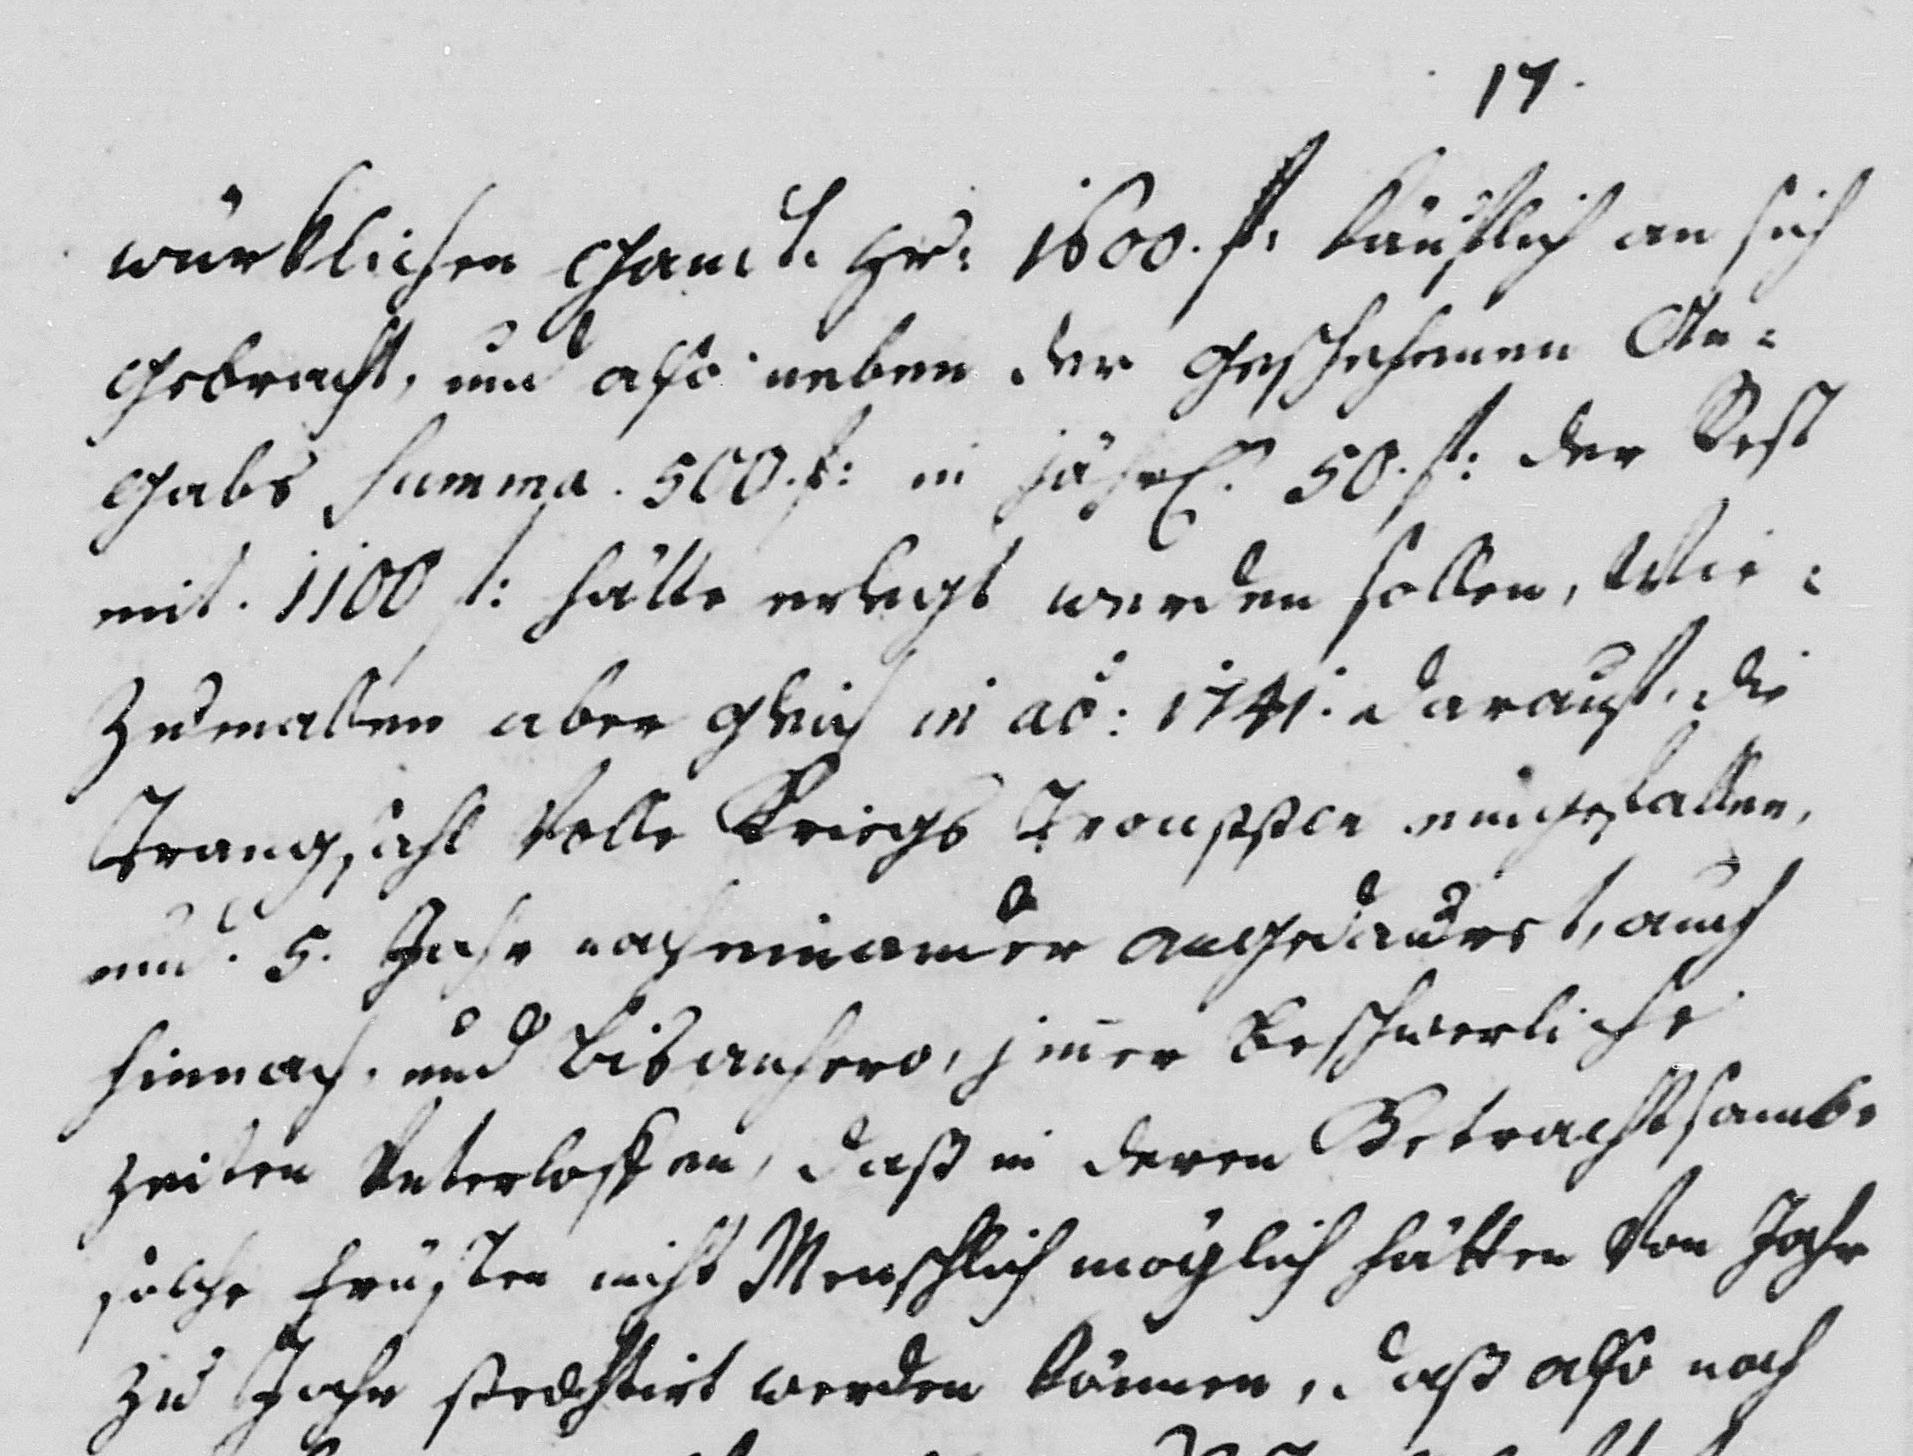 17.
würklichen Gandt. per: 1600. f: käuflich an sich
gebracht, und also neben der geschehenen An=
gabs Summa. 500. f: in jährl. 50. f: der Rest
mit. 1100 f: hätte erlegt werden sollen, Wie=
zumallen aber gleich in ao: 1741. darauf. die
Trangsahl Volle Kriegs Troupplen eingefallen,
und. 5. Jahr nacheinander angedauret, auch
hinnach. und bishanhero, jmer beschwerliche
Zeiten Unterloffen, daß in deren Betrachtsambe
solche Früsten nicht Menschlich möglich hätten Von Jahr
zu Jahr werden können, daß also noch